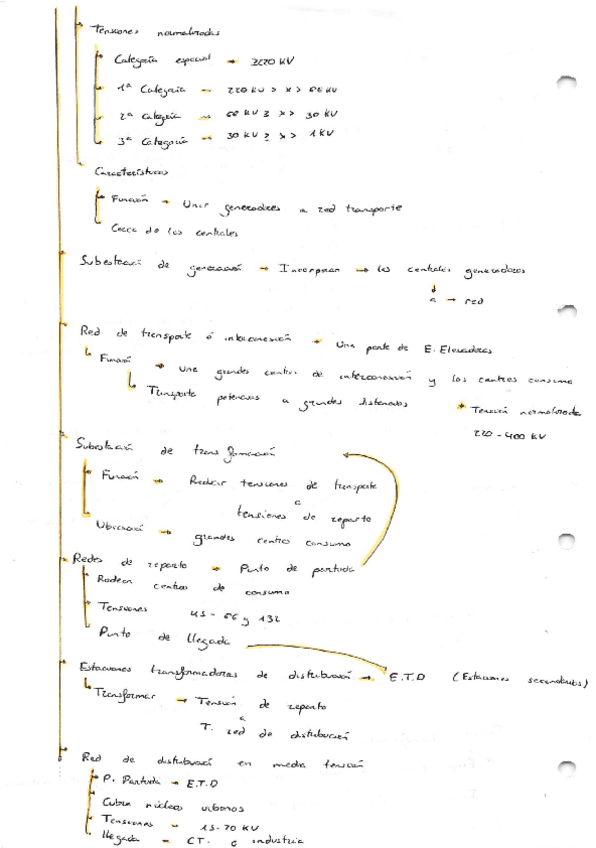 Tensiones normalizadas
Categoría especial → 220 KV
1ª Categoría → 220 KV > x > 66 KV
2ª Categoría → 66 KV ≥ x > 30 KV
3ª Categoría → 30 KV ≥ x > 1 KV
Características
Función → Unir generadores red transporte
Cerca de las centrales
Subestación de generación → Incorporan → las centrales generadoras
↓
a → red
Red de transporte ó interconexión → Una parte de E. Elevadoras
Función → Une grandes centros de interconexión y los centros consumo
Transporte potencias a grandes distancias * Tensión normalizada
220-400 KV
Subestación de transformación
Función → Reducir tensiones de transporte
a
tensiones de reparto
Ubicación → grandes centros consumo
Redes de reparto → Punto de partida
Rodean centros de consumo
Tensiones 45 - 66 y 132
Punto de llegada
Estaciones transformadoras de distribución → E.T.D (Estaciones secundarias)
Transformar → Tensión de reparto
a
T. red de distribución
Red de distribución en media tensión
P. Partida → E.T.D
Cubre núcleos urbanos
Tensiones → 15-20 KV
llegada → CT. ó industria